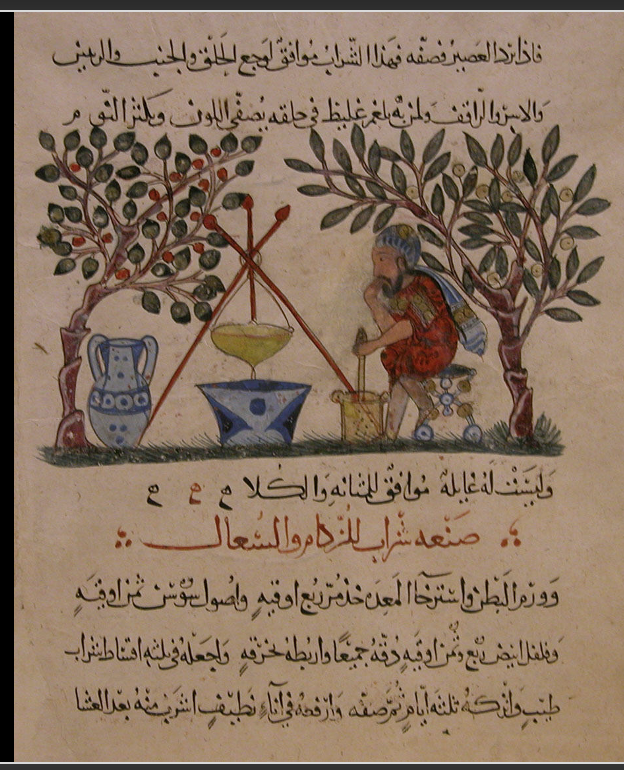 فاذا برد العصير فصفه فهذا الشراب موافق لوجع الحلق والجنب
ولمن به بلغم غليظ في حلقه يصفي اللون ويكثر النوم
وليست له غايله موافق للمثانه والكلا ح ح ح
صنعه شراب للزكام والسعال
وورم البطن واسترخا المعده خذ مر ربع اوقيه واصول سوسن ثمن اوقيه
وفلفل ابيض ربع وثمن اوقيه دقه جميعا واربطه بخرقه واجعله في ثلثه اقساط شراب
طيب واتركه ثلثه ايام ثم صفه وارفعه في اناء نظيف اشرب منه بعد العشا